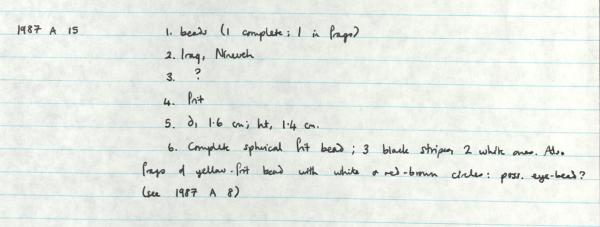 1987 A 15 1. beads (1 complete; 1 in frags)
2. Iraq, Nineveh
3. ?
4. frit
5. d, 1.6 cm; ht, 1.4 cm.
6. Complete spherical frit bead; 3 black stripes, 2 white ones. Also
frags of yellow-frit bead with white & red-brown circles: poss. eye-bead?
(see 1987 A 8)